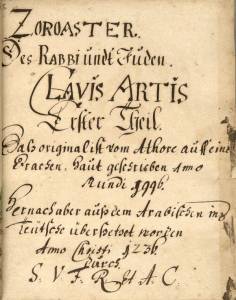 ZOROASTER.
Des RABBI undt Juden.
CLAVIS ARTIS
Erster Theil.
Das original ist vom Athore auff eine
Drachen haut geschrieben Anno
Mundi 1996.
Hernach aber auß dem Arabischen in
Teütsche übersetzet worden
Anno Christi 1236.
durch
S. V. F. R. H. A. C.